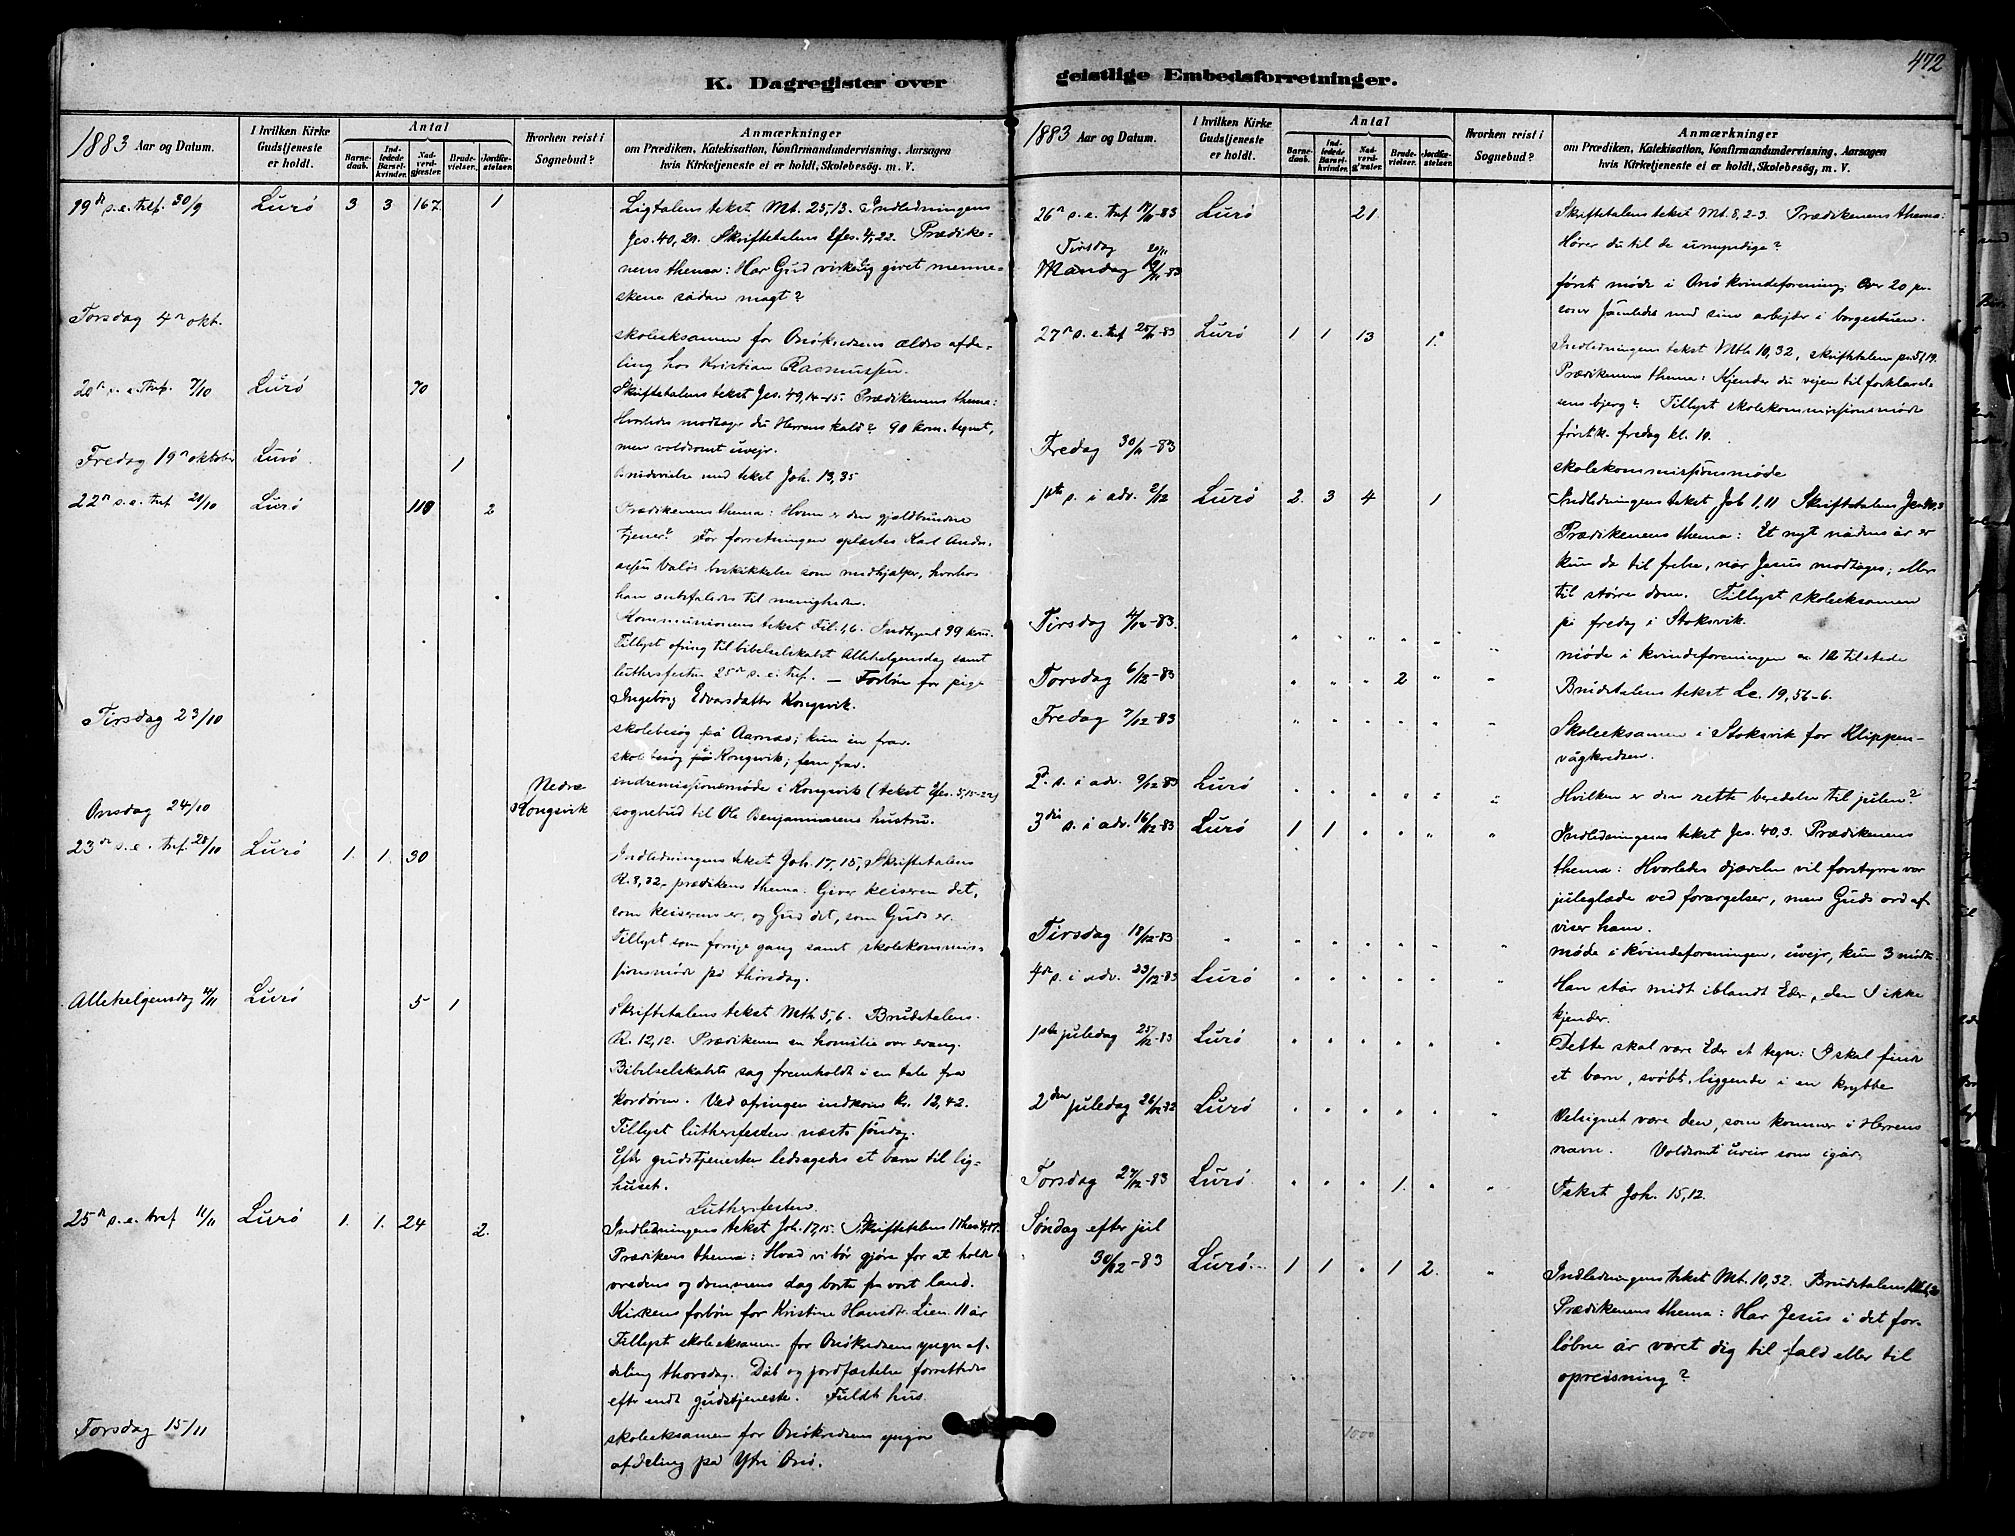 K. Dagregister over
geistlige Embedsforretninger.
472
1883 Aar og Datum.
I hvilken Kirke Gudstjeneste er holdt.
Antal
Barnedaab.
Indledede Barselkvinder.
Nadverdgjæster.
Brudevielser.
Jordfæstelser.
Hvorhen reist i Sognebud?
Anmærkninger
om Prædiken, Katekisation, Konfirmandundervisning, Aarsagen
hvis Kirketjeneste ei er holdt, Skolebesøg, m. V.
19de s. e. tref. 30/9 Lurö 3 3 167. 1 Ligtalens tekst Mt. 25,13. Indledningens
Jes. 40,29. Skriftetalens Efes. 4,22. Prædike-
nens thema: Har Gud virkelig givet menne-
skene sådan magt?
Torsdag 4de okt.
skoleeksamen for Onökredsens ældre afde-
ling hos Kristian Rasmussen.
20de s. e. tref. 7/10 Lurö 70 Skriftetalens tekst Jes. 49,14-15. Prædikenens thema:
Hvorledes modtager du Herrens kald? 90 kom. tegnet,
men voldsomt uvejr.
Fredag 19de oktober Lurö 1 Brudevielse med tekst Joh. 13,35
22de s. e. tref. 21/10 Lurö 118 2 Prædikenens thema: Hvem er den gjældbundne
tjener? Før forretningen oplæstes Karl Andre-
assen Valös beskikkelse som medhjælper, hvorhos
han anbefaledes til menigheden.
Kommunionens tekst Fil. 1,6. Indtegnet 99 kom.
Tillyst ofring til bibelselskabet Allehelgensdag samt
luthersfesten 25de s. e. tref. — Forbön for pige
Ingebörg Edvarsdatter Kongsvik.
Tirsdag 23/10
skolebesög på Aarnæs; kun en frav.
skolebesög på Kongsvik; fem frav.
indremissionsmöde i Kongsvik (tekst Efes. 5,15-22)
Onsdag 24/10 Nedre Kongsvik sognebud til Ole Benjaminsens hustru.
23de s. e. tref. 28/10 Lurö 1. 1. 30 Indledningens tekst Joh. 17,15, Skriftetalens
R. 8,32, prædikens thema: Giver keiseren det,
som keiserens er, og Gud det, som Guds er.
Tillyst som forrige gang samt skolekommis-
sionsmöde på thorsdag.
Allehelgensdag 4/11 Lurö 5 1 Skriftetalens tekst Mth 5,6. Brudetalens
R. 12,12. Prædikenen en homilie over evang.
Bibelselskabets sag fremholdt i en tale fra
kordören. Ved ofringen indkom kr. 12,42.
Tillyst luthersfesten næste söndag.
Efter gudstjenesten ledsagedes et barn til lig-
huset.
Luthersfesten.
25de s. e. tref 11/11 Lurö 1. 1. 24 2. Indledningens tekst Joh. 17,15. Skriftetalens
Prædikens thema: Hvad vi bör gjöre for at holde
vredens og dommens dag borte fra vort land.
Kirkens forbön for Kristine Hansdt. Lien 11 år
Tillyst skoleeksamen for Onökredsens yngre af-
deling thorsdag. Dåb og jordfæstelse forrettedes
efter endt gudstjeneste. Fuldt hus.
Torsdag 15/11
skoleeksamen for Onökredsens yngre
afdeling på Ytre Onö.
1883 Aar og Datum.
I hvilken Kirke Gudstjeneste er holdt.
Antal
Barnedaab.
Indledede Barselkvinder.
Nadverdgjæster.
Brudevielser.
Jordfæstelser.
Hvorhen reist i Sognebud?
Anmærkninger
om Prædiken, Katekisation, Konfirmandundervisning, Aarsagen
hvis Kirketjeneste ei er holdt, Skolebesøg, m. V.
26de s. e. tref -83 Lurö 21 Skriftetalens tekst Mt. 8,2-3. Prædikenens thema:
Hører du til de umyndige?
Tirsdag 20/11
Mandag 19/11-83 först möde i Onö kvindeforening. Over 20 per-
soner samledes med sine arbejder i borgestuen.
27de s. e. tref 25/11-83 Lurö 1 1 13 1. Indledningens tekst Mth 10,32, skriftetalen
Prædikenens thema: Kjender du vejen til forklarel-
sens bjerg? Tillyst skolekommissionsmöde
förstk. fredag kl. 10.
Fredag 30/11-83
skolekommissionsmöde
1ste s. i adv. 2/12 Lurö 2. 3 4 1 Indledningens tekst Job 1,11 Skriftetalens
Prædikenens thema: Et nyt nådens år er
kun da til frelse, når Jesus modtages; ellers
til större dom. Tillyst skoleeksamen
på fredag i Stoksvik.
Tirsdag 4/12-83.
möde i kvindeforeningen ca. 12 tilstede
Torsdag 6/12-83 2 Brudetalens tekst Lc. 19,5b-6.
Fredag 7/12-83
Skoleeksamen i Stoksvik for Klippen-
vågkredsen.
2. s. i adv. 9/12-83 Lurö Hvilken er den rette beredelse til julen?
3die s. i adv. 16/12-83 Lurö 1 1 Indledningens tekst Jes. 40,3. Prædikenens
thema: Hvorledes djævelen vil forstyrre vor
juleglæde ved forargelser, men Guds ord af-
viser ham.
Tirsdag 18/12-83
möde i kvindeforeningen, uvejr, kun 3 mödte
4de s. i adv. 23/12-83 Lurö Han står midt iblandt Eder, den I ikke
kjender.
1ste juledag 25/12-83 Lurö Dette skal være Eder et tegn: I skal finde
et barn, svöbt, liggende i en krybbe
2den juledag 26/12-82 Lurö Velsignet være den, som kommer i Herrens
navn. Voldsomt uveir som igår.
Torsdag 27/12-83 Lurö. 1. Tekst Joh. 15,12.
Söndag efter jul
30/12-83 Lurö 1 1 1 2. Indledningens tekst Mt. 10,32. Brudetalens
Prædikenens thema: Har Jesus i det for-
löbne år været dig til fald eller til
opreisning?
1000